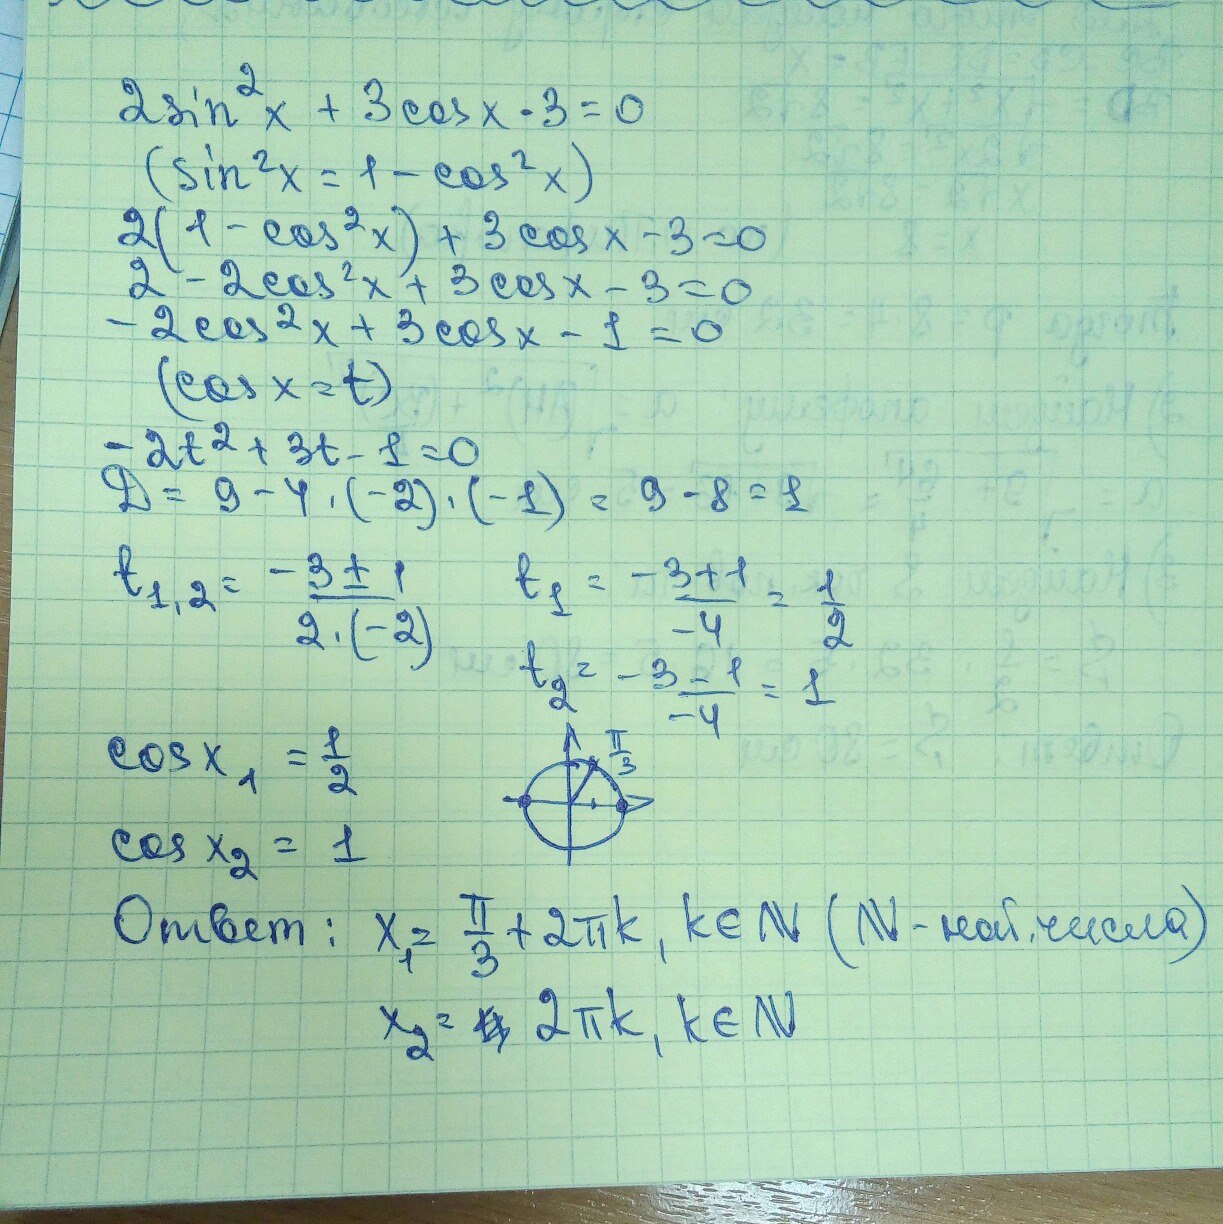 2sin²x + 3cosx - 3 = 0
(sin²x = 1 - cos²x)
2(1 - cos²x) + 3cosx - 3 = 0
2 - 2cos²x + 3cosx - 3 = 0
-2cos²x + 3cosx - 1 = 0
(cosx = t)
-2t² + 3t - 1 = 0
D = 9 - 4·(-2)·(-1) = 9 - 8 = 1
t₁,₂ = (-3 ± 1)/(2·(-2)) t₁ = (-3+1)/(-4) = 1/2
t₂ = (-3-1)/(-4) = 1
cosx₁ = 1/2
π/3
cosx₂ = 1
Ответ: x₁ = π/3 + 2πk, k∈ℕ (ℕ - нат. числа)
x₂ = 2πk, k∈ℕ